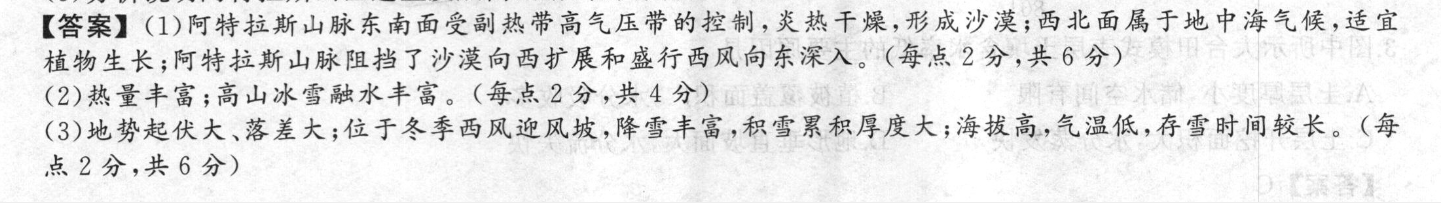 【答案】(1)阿特拉斯山脉东南面受副热带高气压带的控制,炎热干燥,形成沙漠;西北面属于地中海气候,适宜
植物生长;阿特拉斯山脉阻挡了沙漠向西扩展和盛行西风向东深入。(每点2分,共6分)
(2)热量丰富;高山冰雪融水丰富。(每点2分,共4分)
(3)地势起伏大、落差大;位于冬季西风迎风坡,降雪丰富,积雪累积厚度大;海拔高,气温低,存雪时间较长。(每
点2分,共6分)